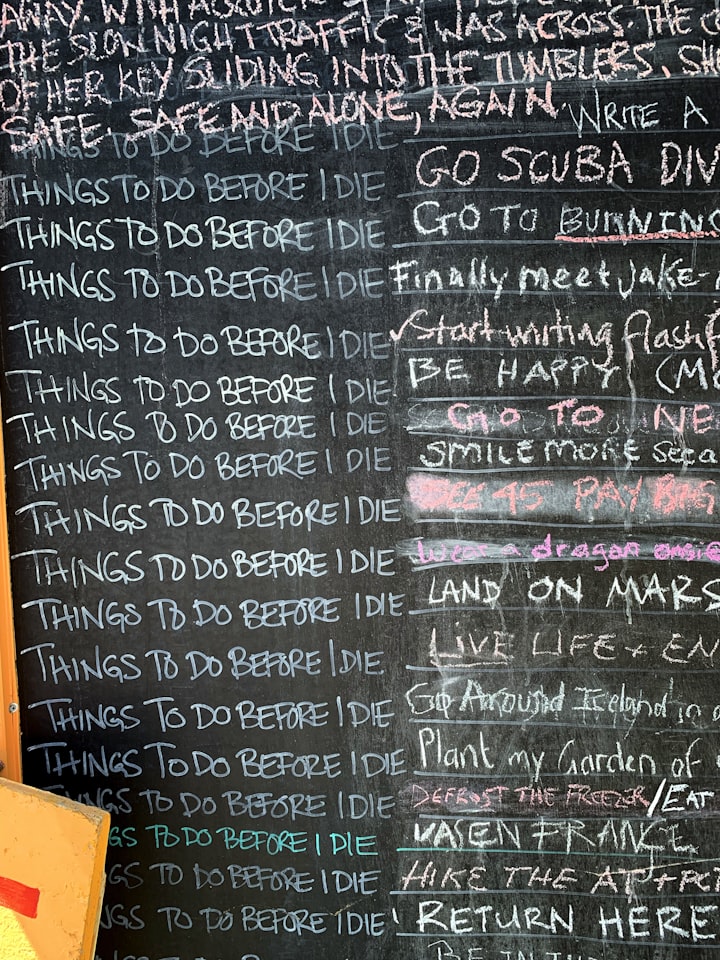 AWAY. WITH
THE SLOW NIGHT TRAFFIC & WAS ACROSS THE
OF HER KEY SLIDING INTO THE TUMBLERS. SH
SAFE. SAFE AND ALONE, AGAIN.
THINGS TO DO BEFORE I DIE WRITE A
THINGS TO DO BEFORE I DIE GO SCUBA DIV
THINGS TO DO BEFORE I DIE GO TO BURNING
THINGS TO DO BEFORE I DIE Finally meet Jake-
THINGS TO DO BEFORE I DIE Start writing flash
THINGS TO DO BEFORE I DIE BE HAPPY (MO
THINGS TO DO BEFORE I DIE GO TO NE
THINGS TO DO BEFORE I DIE SMILE MORE
THINGS TO DO BEFORE I DIE SEE 45 PAY
THINGS TO DO BEFORE I DIE Wear a dragon onesie
THINGS TO DO BEFORE I DIE LAND ON MARS
THINGS TO DO BEFORE I DIE LIVE LIFE + EN
THINGS TO DO BEFORE I DIE GO Around Iceland in a
THINGS TO DO BEFORE I DIE Plant my Garden of
THINGS TO DO BEFORE I DIE DEFROST THE FREEZER/EAT
GS TO DO BEFORE I DIE FRANCE
GS TO DO BEFORE I DIE HIKE THE AT +
NGS TO DO BEFORE I DIE RETURN HERE
BE IN THE